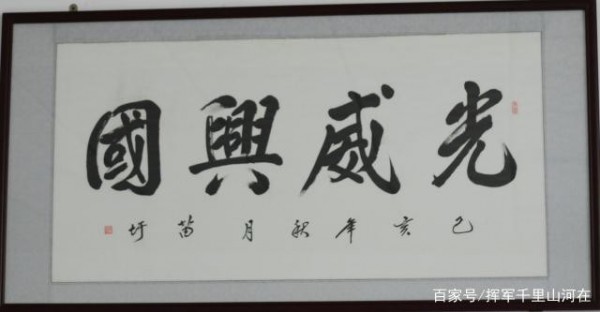 光威興國
己亥年秋月苗圩
百家号/挥军千里山河在